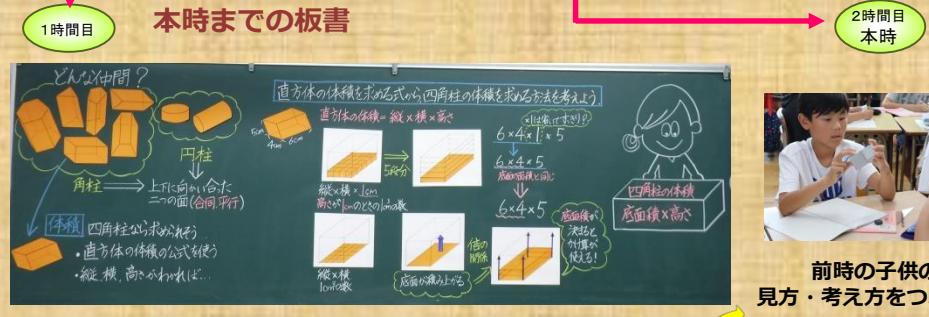 1時間目
本時までの板書
2時間目
本時
どんな仲間?
角柱
円柱
上下に向かい合った
二つの面(合同、平行)
体積
四角柱なら求められそう
・直方体の体積の公式を使う
・縦、横、高さがわかれば…
直方体の体積を求める式から、四角柱の体積を求める方法を考えよう
5cm
4cm
6cm
直方体の体積=縦×横×高さ
縦×横×1cm
5段分
縦×横
底面が積み上がる
倍の
関係
6×4×1×5
6×4×5
底面の面積と同じ
6×4×5
底面積が
決まると
かけ算が
使える!
四角柱の体積
底面積×高さ
前時の子供の
見方・考え方をつ